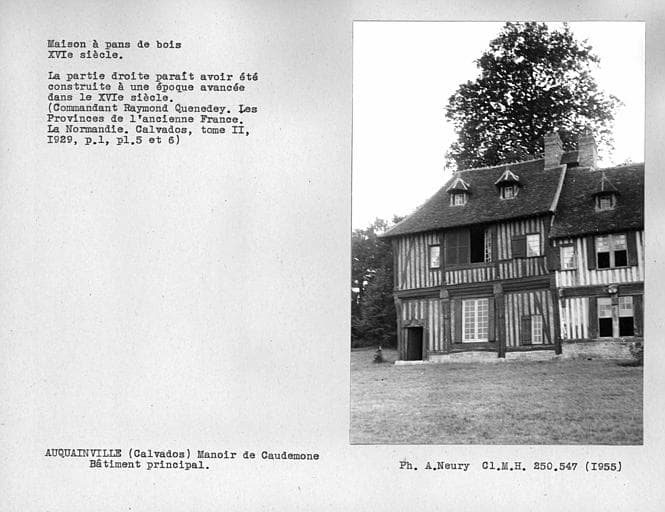 Maison à pans de bois
XVIe siècle.
La partie droite paraît avoir été
construite à une époque avancée
dans le XVIe siècle.
(Commandant Raymond Quenedey. Les
Provinces de l'ancienne France.
La Normandie. Calvados, tome II,
I929, p.l, pl.5 et 6)
AUQUAINVILLE (Calvados) Manoir de Caudemone
Bâtiment principal.
Ph. A.Neury Cl.M.H. 250.547 (I955)